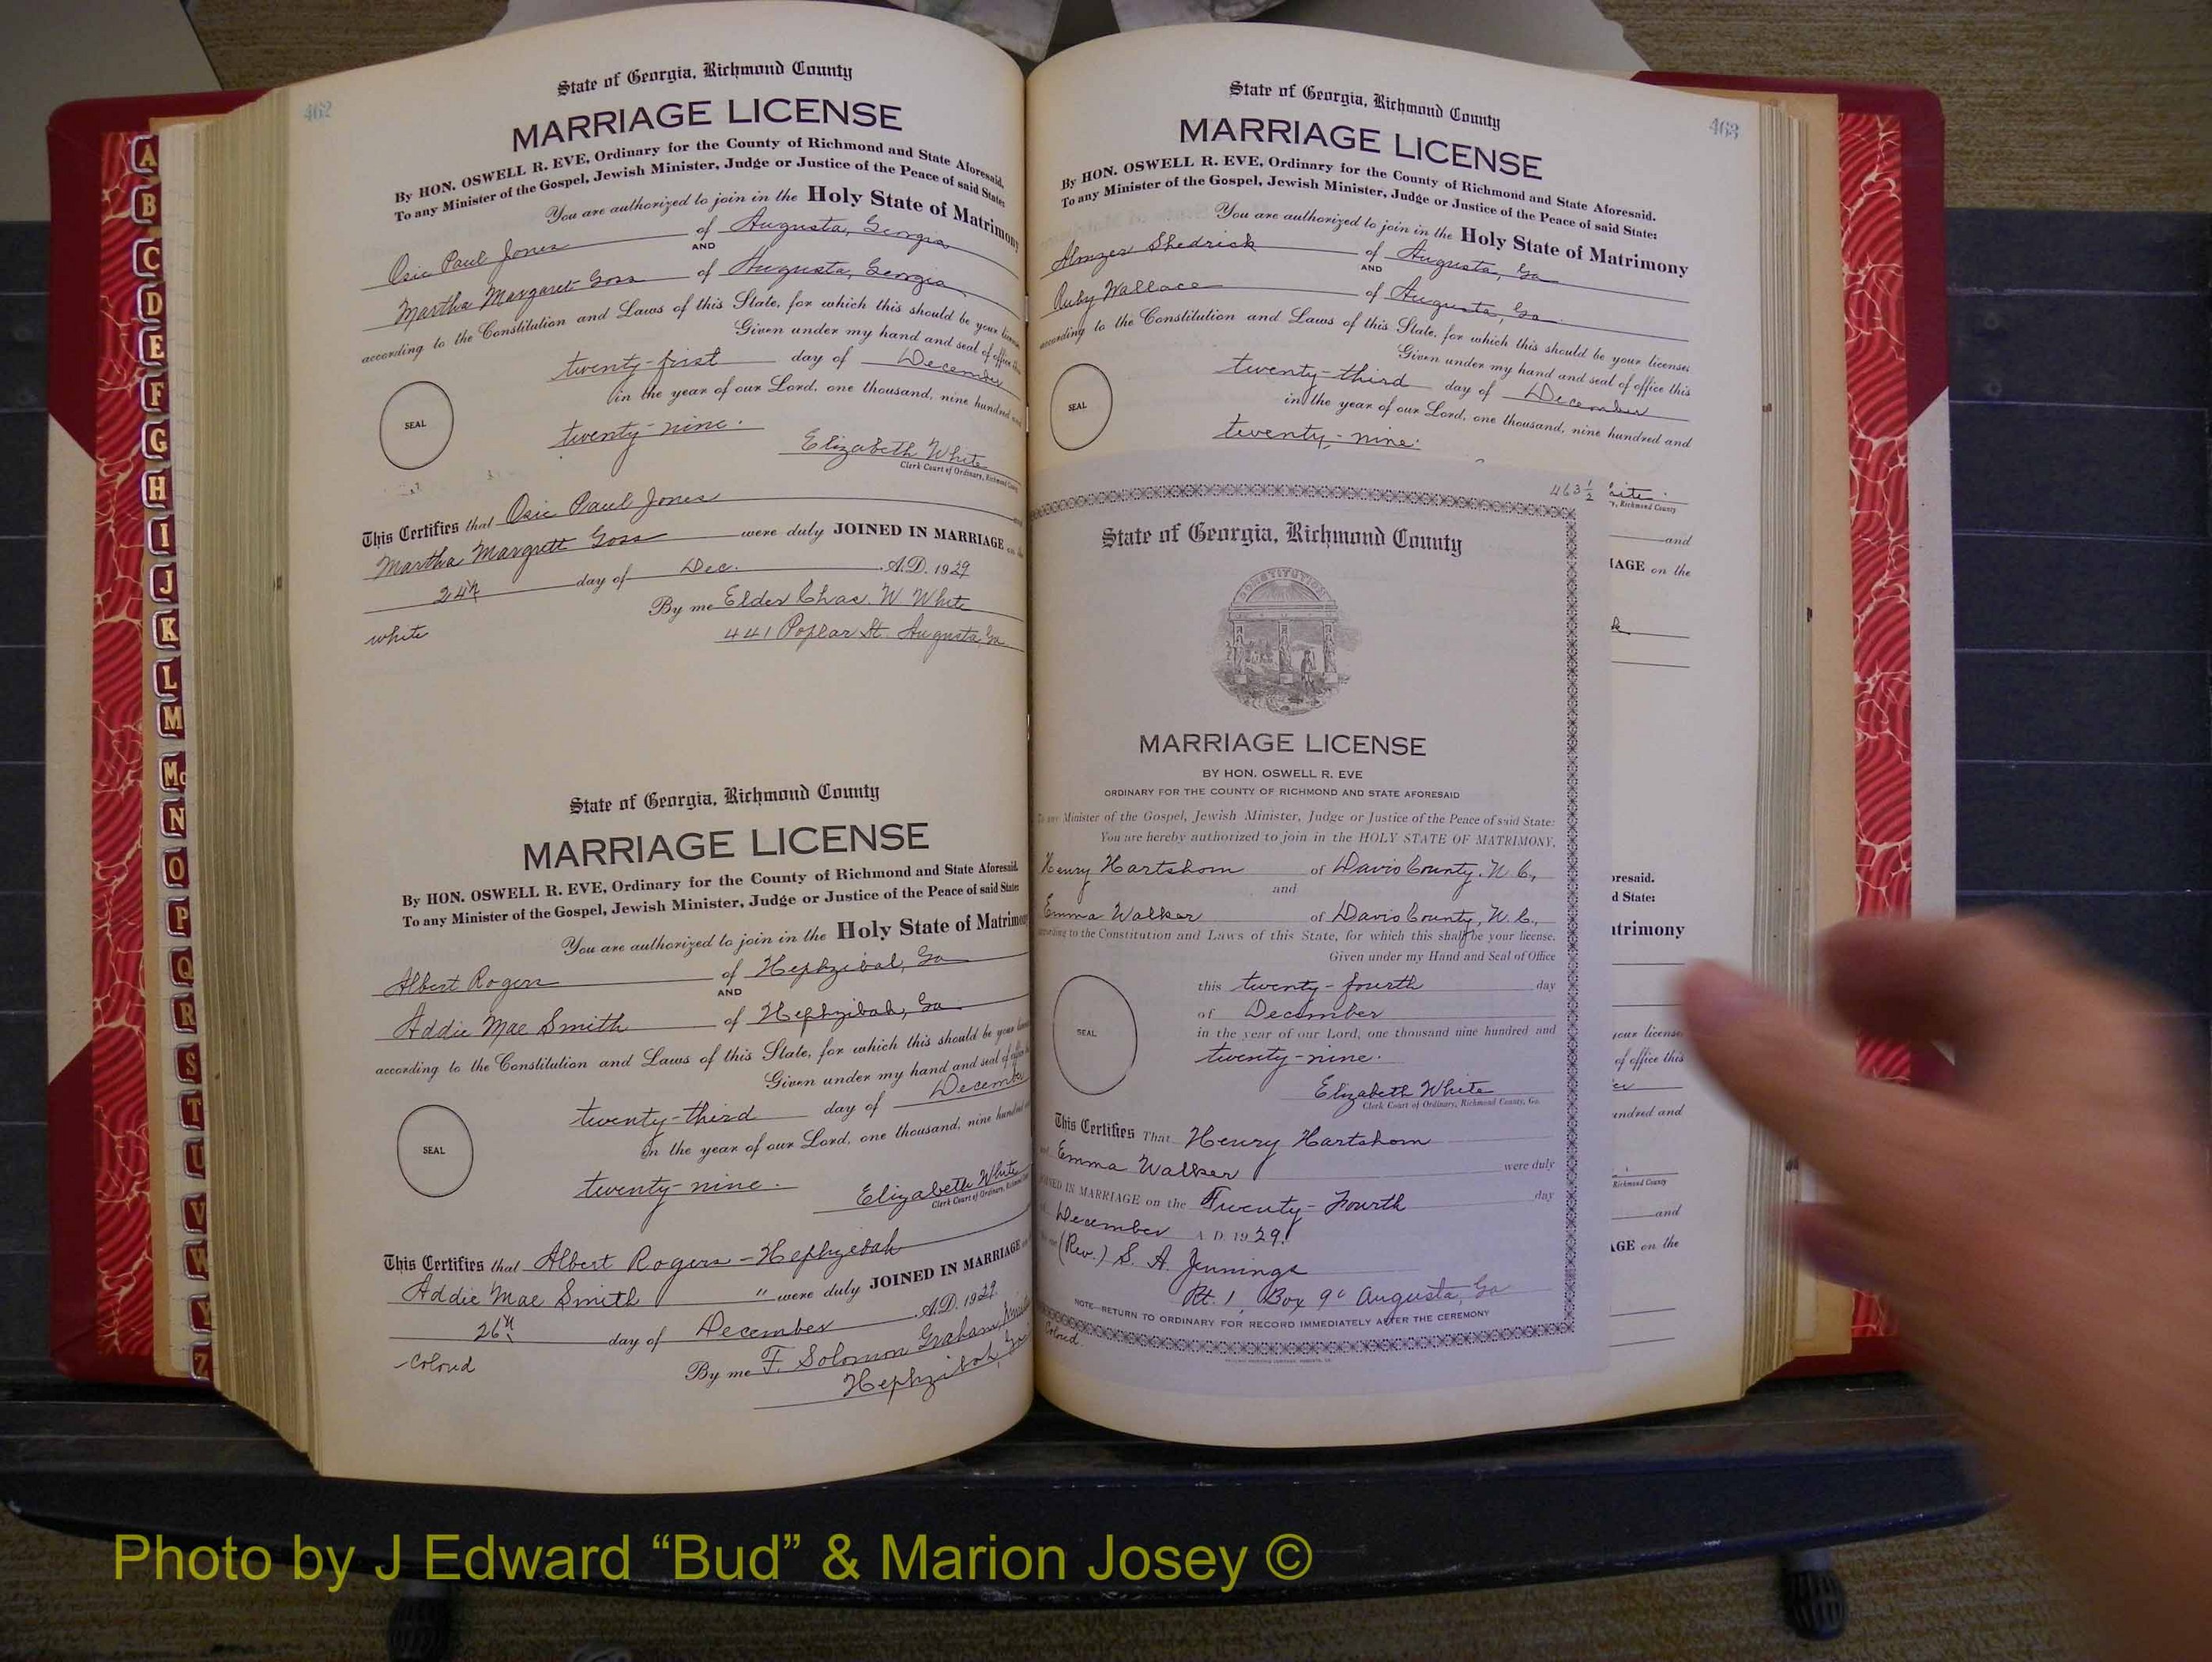 462
State of Georgia, Richmond County
MARRIAGE LICENSE
By HON. OSWELL R. EVE, Ordinary for the County of Richmond and State Aforesaid.
To any Minister of the Gospel, Jewish Minister, Judge or Justice of the Peace of said State:
You are authorized to join in the Holy State of Matrimony
Osie Paul Jones of Augusta, Georgia
AND
Martha Margaret Goss of Augusta, Georgia
according to the Constitution and Laws of this State, for which this should be your license
Given under my hand and seal of office this
twenty-first day of December
in the year of our Lord, one thousand, nine hundred and
twenty-nine.
SEAL
Elizabeth White
Clerk Court of Ordinary, Richmond County
This Certifies that Osie Paul Jones
Martha Margrett Goss were duly JOINED IN MARRIAGE on the
24th day of Dec. A.D. 1929
By me Elder Chas. W. White
white
441 Poplar St. Augusta, Ga
State of Georgia, Richmond County
MARRIAGE LICENSE
By HON. OSWELL R. EVE, Ordinary for the County of Richmond and State Aforesaid.
To any Minister of the Gospel, Jewish Minister, Judge or Justice of the Peace of said State:
You are authorized to join in the Holy State of Matrimony
Albert Rogers of Hephzibah, Ga
AND
Addie Mae Smith of Hephzibah, Ga
according to the Constitution and Laws of this State, for which this should be your license
Given under my hand and seal of office
twenty-third day of December
in the year of our Lord, one thousand, nine hundred
twenty-nine.
SEAL
Elizabeth White
Clerk Court of Ordinary, Richmond
This Certifies that Albert Rogers - Hephzebah
Addie Mae Smith " were duly JOINED IN MARRIAGE
26th day of December A.D. 1929
By me F. Solomon Graham,
colored
Hephzibah, Ga
463
State of Georgia, Richmond County
MARRIAGE LICENSE
By HON. OSWELL R. EVE, Ordinary for the County of Richmond and State Aforesaid.
To any Minister of the Gospel, Jewish Minister, Judge or Justice of the Peace of said State:
You are authorized to join in the Holy State of Matrimony
Almzer Shedrick of Augusta, Ga
AND
Ruby Wallace of Augusta, Ga
according to the Constitution and Laws of this State, for which this should be your license
Given under my hand and seal of office this
twenty-third day of December
in the year of our Lord, one thousand, nine hundred and
twenty-nine.
SEAL
463½
State of Georgia, Richmond County
CONSTITUTION
MARRIAGE LICENSE
BY HON. OSWELL R. EVE
ORDINARY FOR THE COUNTY OF RICHMOND AND STATE AFORESAID
To any Minister of the Gospel, Jewish Minister, Judge or Justice of the Peace of said State:
You are hereby authorized to join in the HOLY STATE OF MATRIMONY,
Henry Hartshorn of Davis County, N.C.,
and
Emma Walker of Davis County, N.C.,
according to the Constitution and Laws of this State, for which this shall be your license.
Given under my Hand and Seal of Office
this twenty-fourth day
of December
in the year of our Lord, one thousand nine hundred and
twenty-nine.
SEAL
Elizabeth White
Clerk Court of Ordinary, Richmond County, Ga.
This Certifies That Henry Hartshorn
and Emma Walker were duly
JOINED IN MARRIAGE on the Twenty-Fourth day
December A. D. 1929
(Rev.) S. A. Jennings
Rt. 1, Box 90 Augusta, Ga
NOTE—RETURN TO ORDINARY FOR RECORD IMMEDIATELY AFTER THE CEREMONY
Colored
, Richmond County
and
IAGE on the
resaid.
d State:
trimony
your license
of office this
undred and
Richmond County
and
AGE on the
A
B
C
D
E
F
G
H
I
J
K
L
M
Mc
N
O
P
Q
R
S
T
U
V
W
Y
Z
Photo by J Edward “Bud” & Marion Josey ©